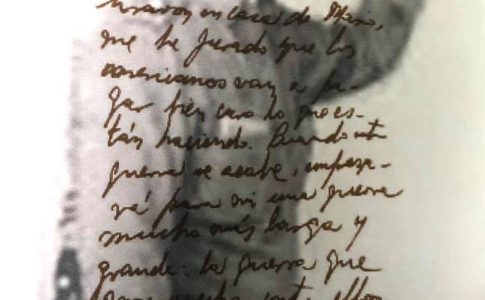 tiraron en casa de Mario,
me he jurado que los
americanos van a pa-
gar bien caro lo que es-
tán haciendo. Cuando esta
guerra se acabe, empeza-
rá para mi una guerra
mucho más larga y
grande: la guerra que